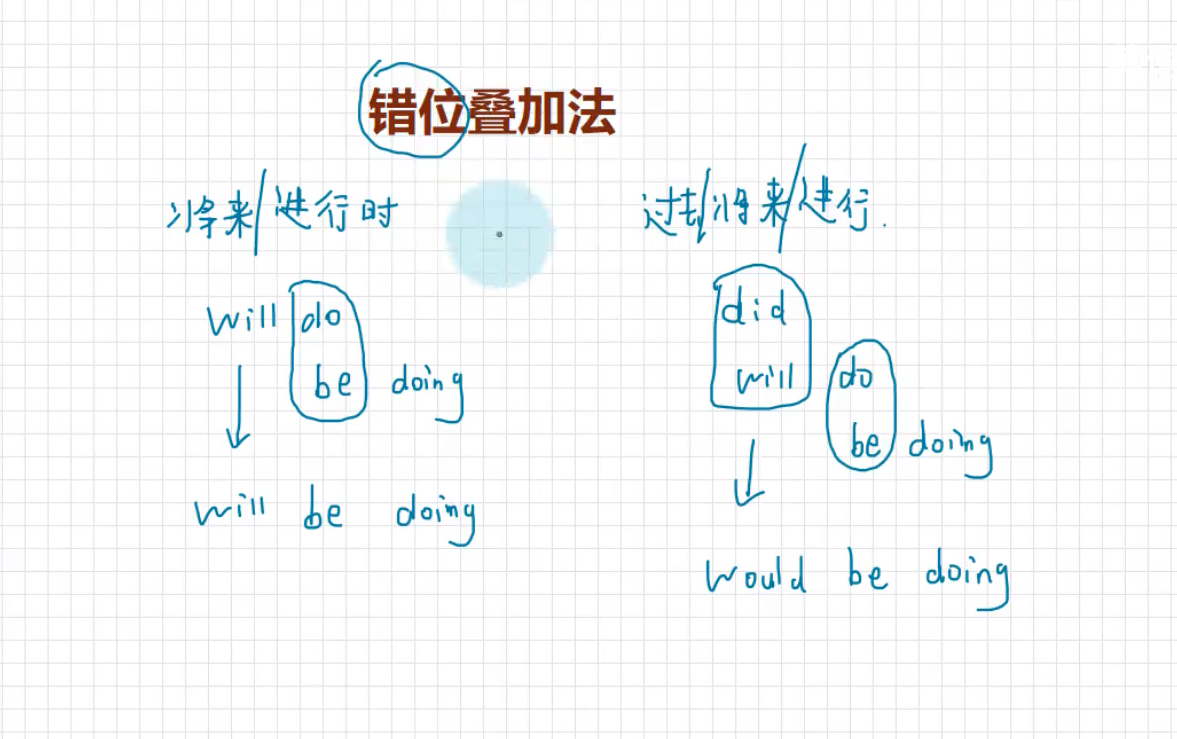 错位叠加法
将来/进行时
will do
be doing
will be doing
过去/将来/进行.
did
will do
be doing
would be doing